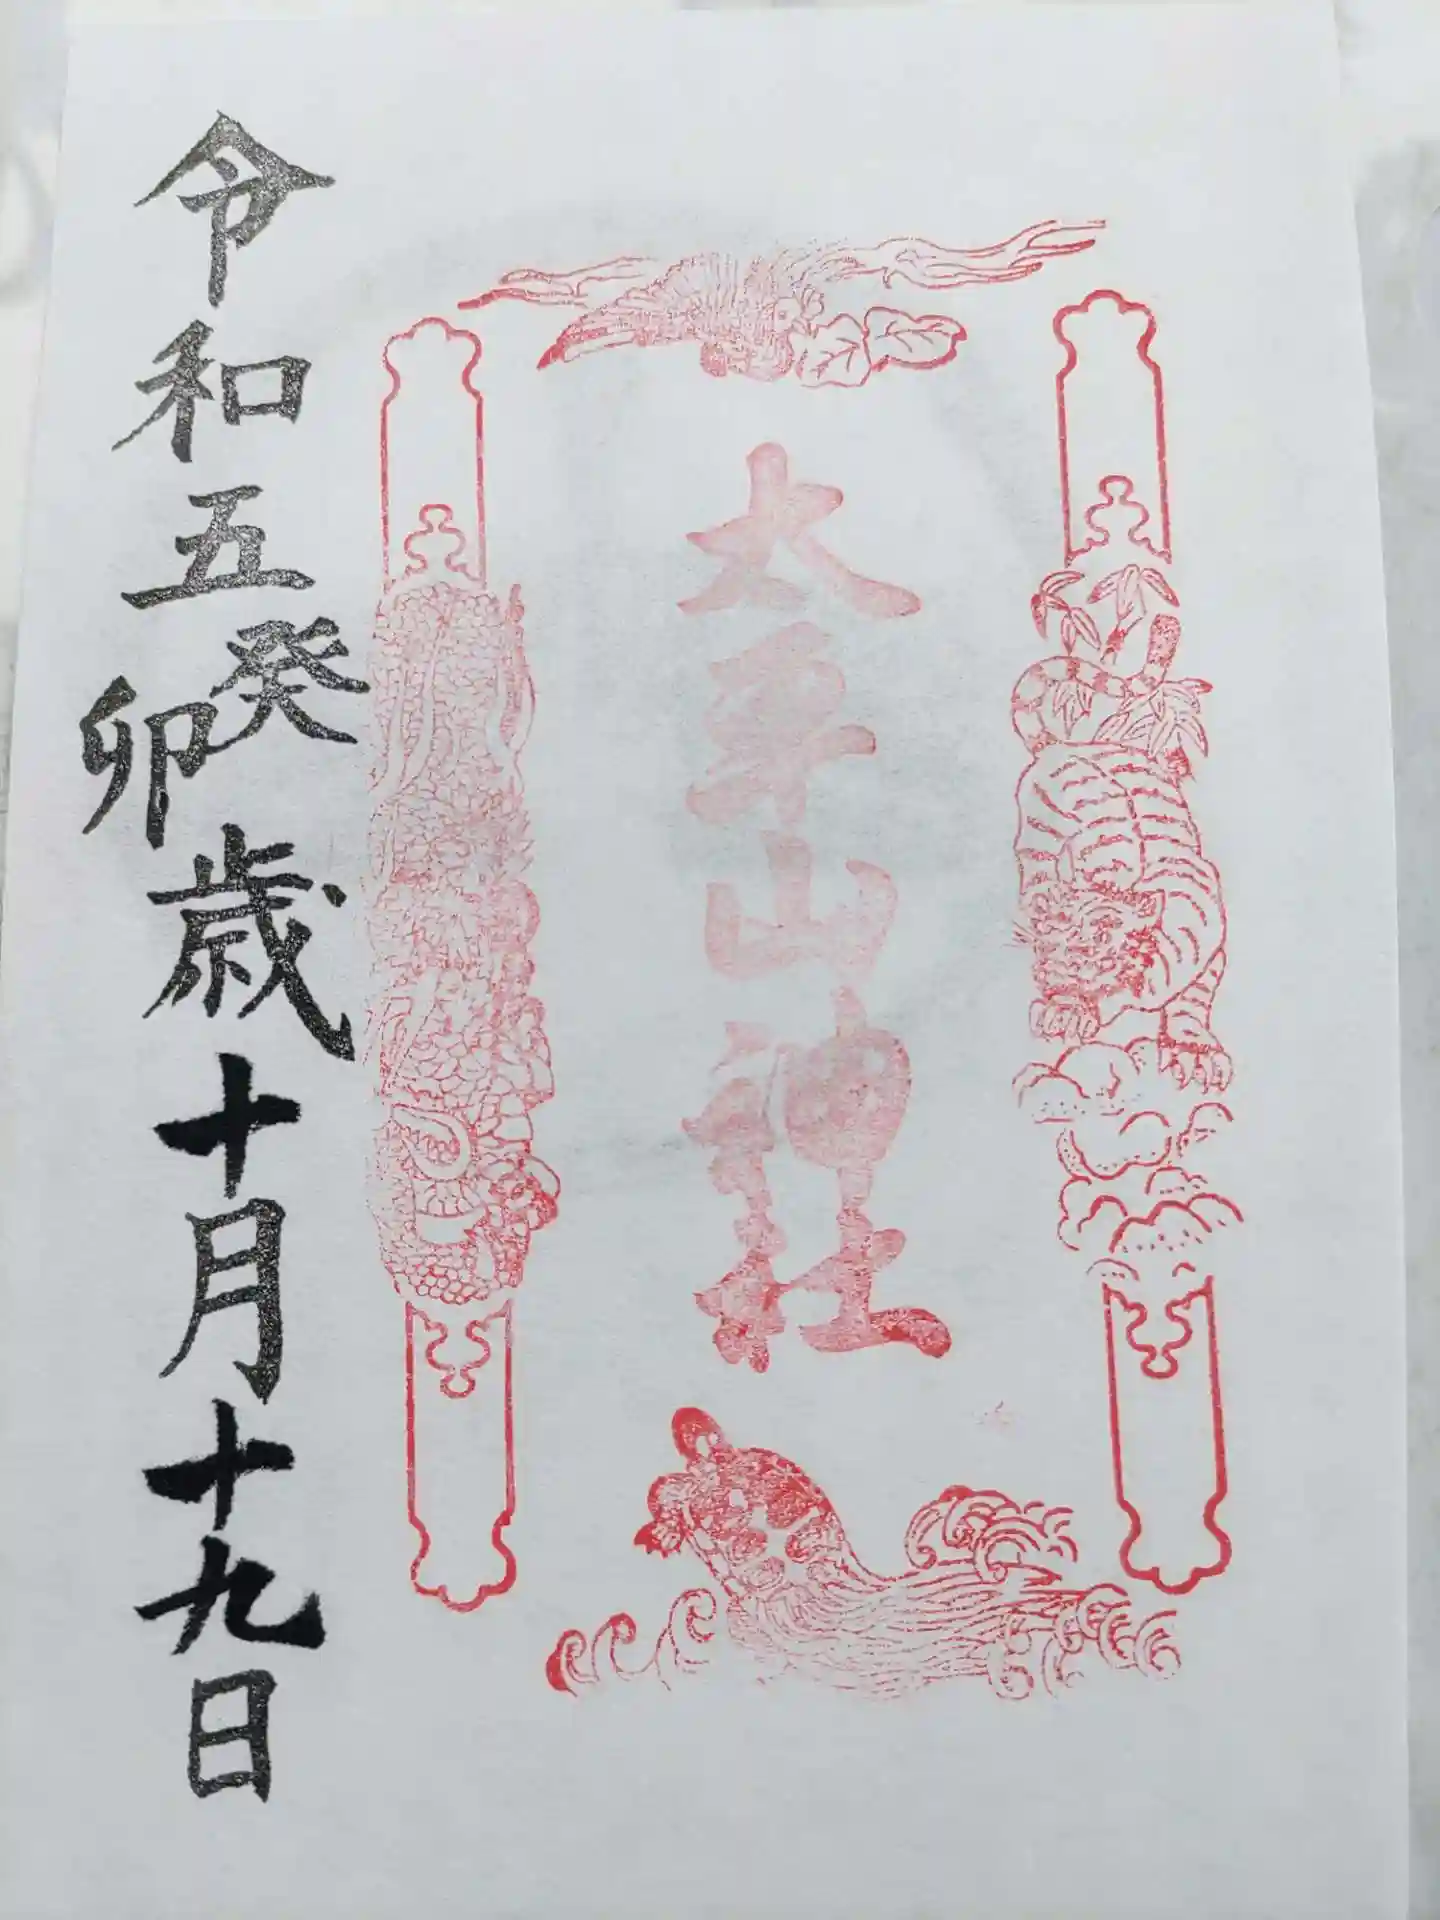 太平山神社
令和五癸卯歳十月十九日